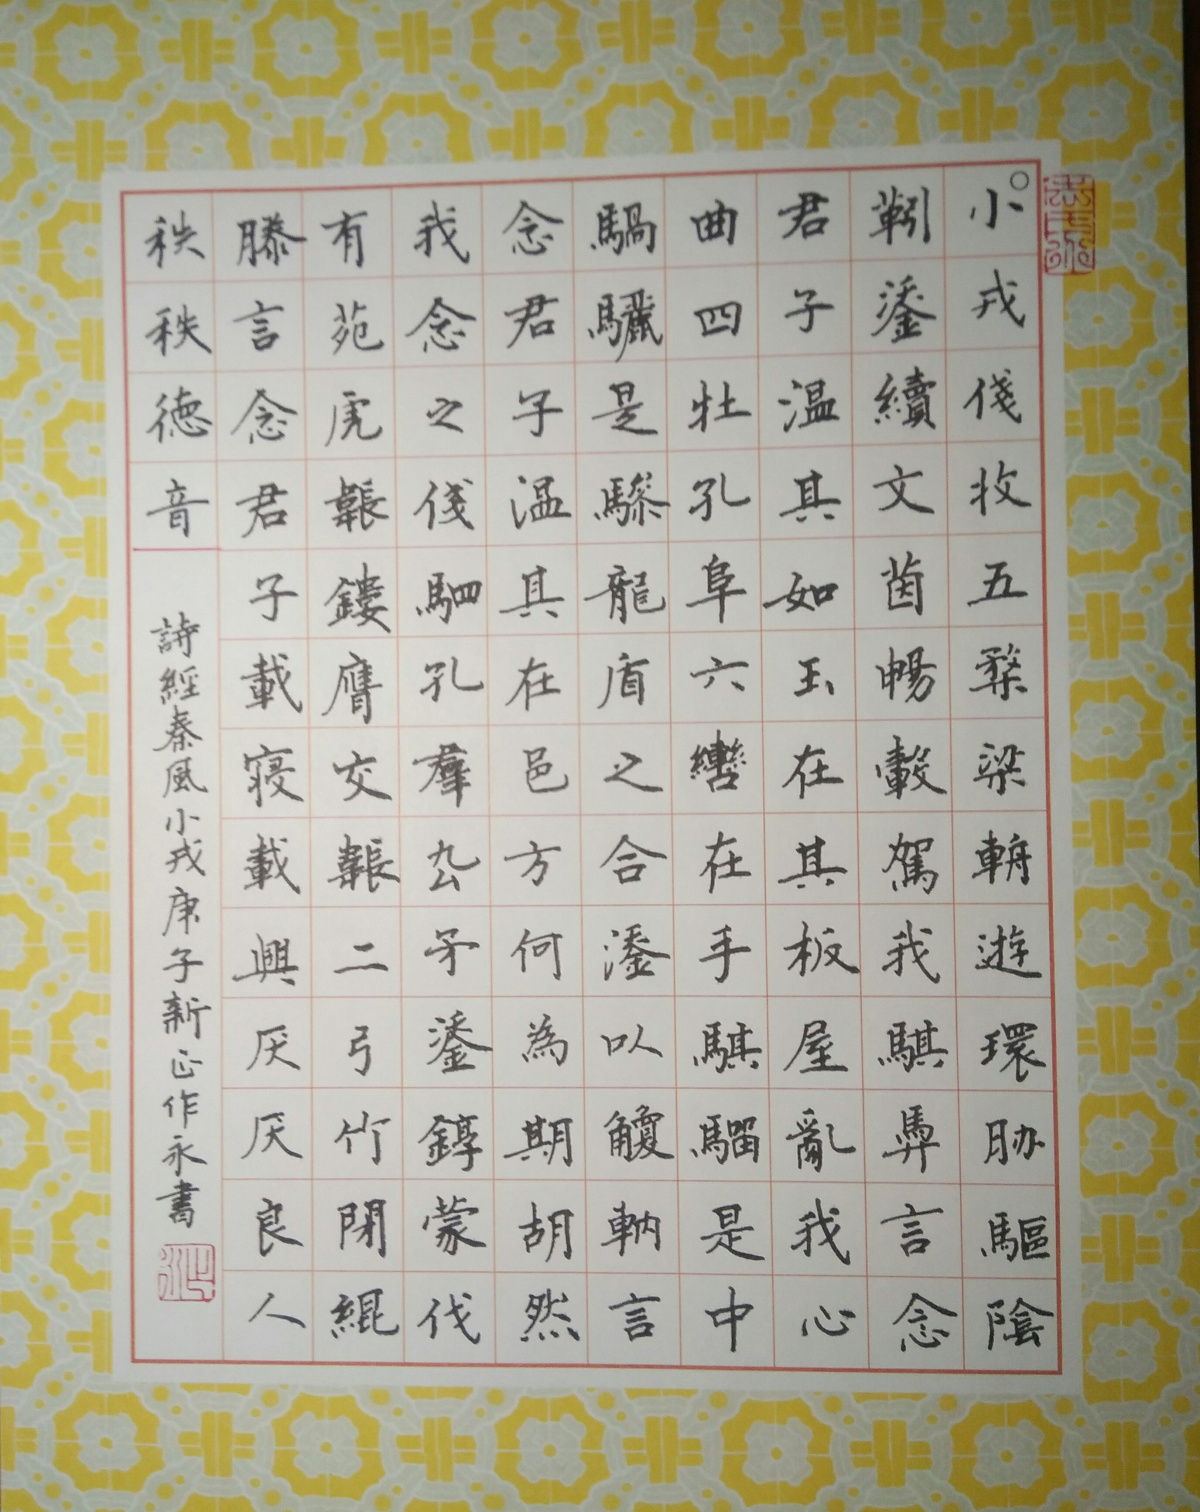 小戎俴收五楘梁輈遊環胁驅陰
靷鋈續文茵暢轂駕我騏馵言念
君子温其如玉在其板屋亂我心
曲四牡孔阜六轡在手騏騮是中
騧驪是驂龍盾之合鋈以觼軜言
念君子温其在邑方何為期胡然
我念之俴駟孔羣厹矛鋈錞蒙伐
有苑虎韔鏤膺交韔二弓竹閉緄
縢言念君子載寢載興厌厌良人
秩秩德音
詩經秦風小戎庚子新正作永書